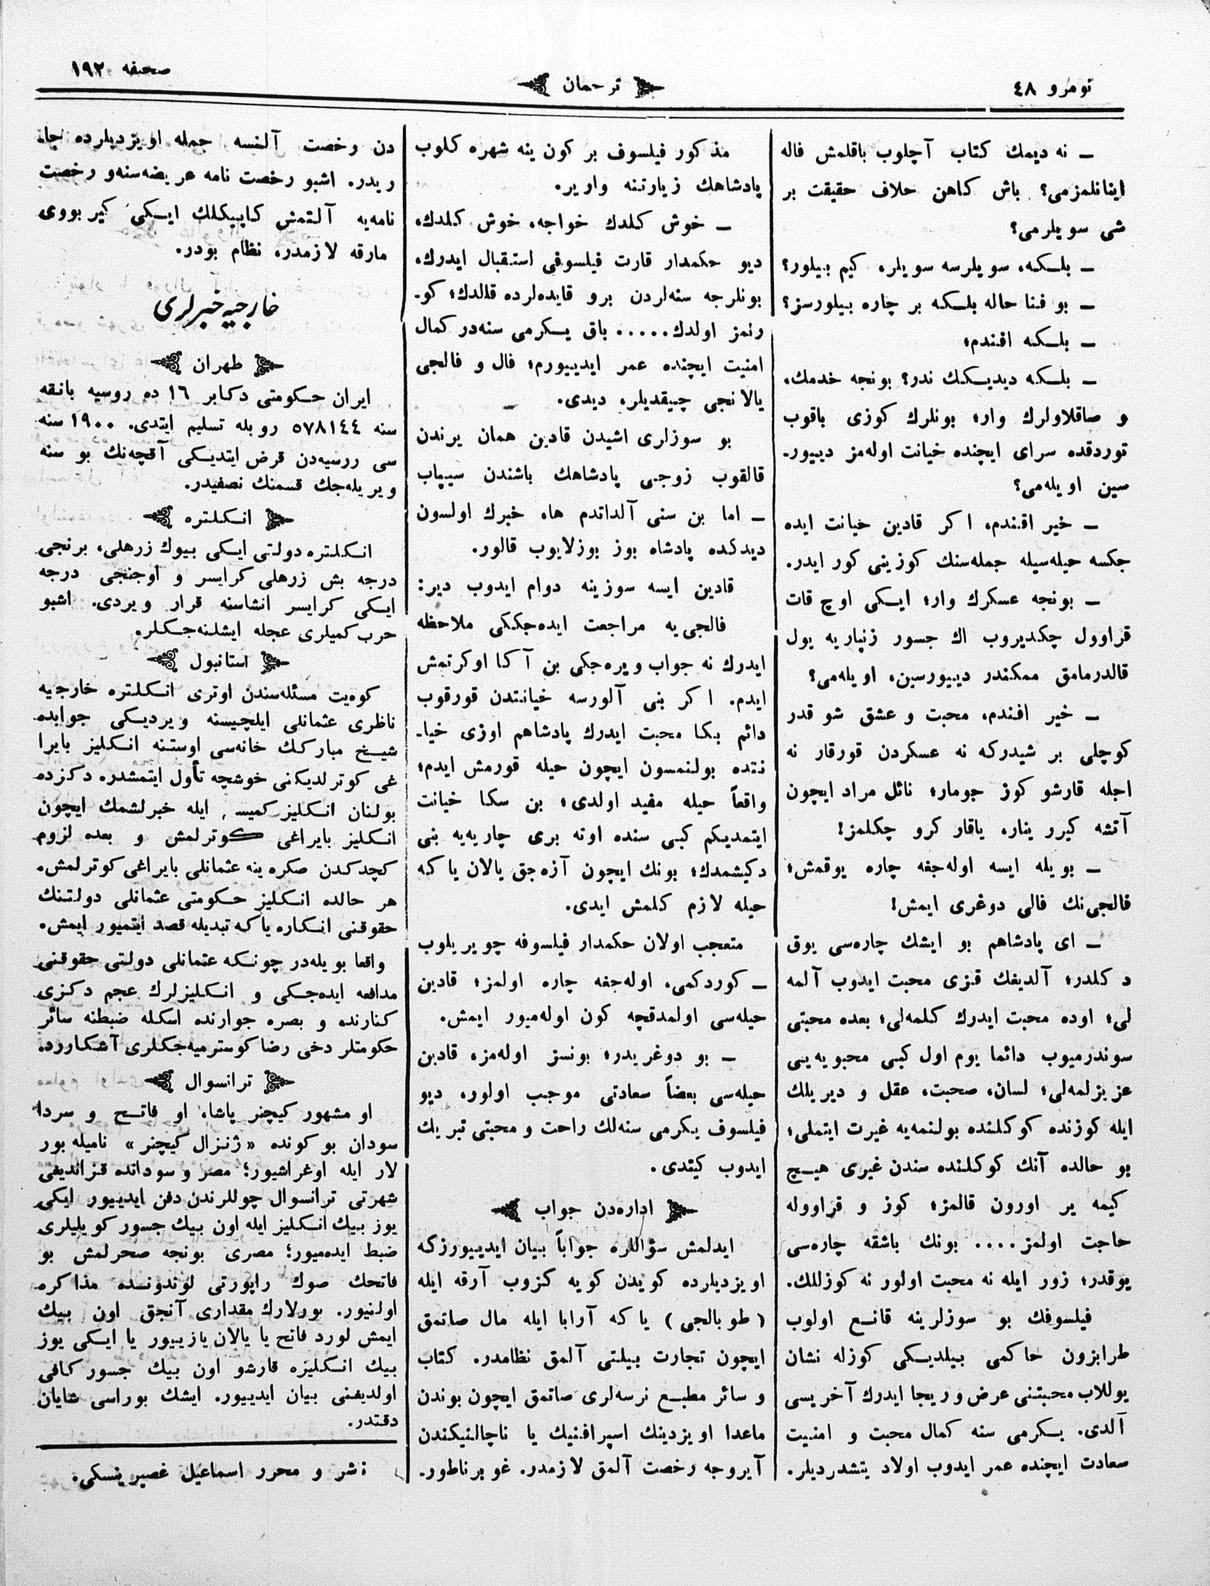 نومرو ٤٨
ترجمان
صحیفه ١٩٢
ـ نه دیمك كتاب آچلوب باقلمش فاله
اینانلمزمی؟ باش كاهن خلاف حقیقت بر
شی سویلرمی؟
ـ بلـكه، سویلرسه سویلر، كیم بیلور؟
ـ بو فنا حاله بلـكه بر چاره بیلورسز؟
ـ بلـكه افندم؛
ـ بلـكه دیدیـكك ندر؟ بونجه خدمك،
و صاقلاولرك وار؛ بونلرك كوزی باقوب
توردقده سرای ایچنده خیانت اوله‌مز دیيور۔
سین اویله‌می؟
ـ خیر افندم، اكر قادین خیانت ایده
جكسه حیله‌سیله جمله‌سنك كوزینی كور ایدر.
ـ بونجه عسكرك وار؛ ایـكی اوچ قات
قراوول چكدیروب اك جسور زنپاریه یول
قالدرمامق ممكندر دیيورسین، اویله‌می؟
ـ خیر افندم، محبت و عشق شو قدر
كوچلی بر شیدركه نه عسكردن قورقار نه
اجله قارشو كوز جومار؛ نائل مراد ایچون
آتشه كیرر ینار، یاقار كرو چكلمز!
ـ بویله ایسه اوله‌جغه چاره یوقمش؛
فالجی‌نك فالی دوغری ایمش!
ـ ای پادشاهم بو ایشك چاره‌سی یوق
دكلدر؛ آلدیغك قیزی محبت ایدوب آلمه
لی؛ اوده محبت ایدرك كلمه‌لی؛ بعده محبتی
سوندرمیوب دائما یوم اول كبی محبوبه‌یی
عزیزلمه‌لی؛ لسان، صحبت، عقل و دیریلك
ایله كوزنده كوكلنده بولنمه‌یه غیرت ایتملی؛
بو حالده آنك كوكلنده سندن غیری هیـچ
كیمه یر اورون قالمز؛ كوز و قراووله
حاجت اولمز.... بونك باشقه چاره‌سی
یوقدر؛ زور ایله نه محبت اولور نه كوزللك.
فیلسوفك بو سوزلرینه قانـع اولوب
طرابزون حاكمی بیلدیـكی كوزله نشان
یوللاب محبتنی عرض و ریجا ایدرك آخریسی
آلدی. یـكرمی سنه كمال محبت و امنیت
سعادت ایچنده عمر ایدوب اولاد یتشدردیلر.
مذكور فیلسوف بر كون ینه شهره كلوب
پادشاهك زیارتنه واریر.
ـ خوش كلدك خواجه، خوش كلدك،
دیو حكمدار قارت فیلسوفی استقبال ایدرك،
بونلرجه سنه‌لردن برو قایده‌لرده قالدك؛ كو۔
رنمز اولدك..... باق یـكرمی سنه‌در كمال
امنیت ایچنده عمر ایدییورم؛ فال و فالجی
یالانجی چیقدیلر، دیدی.
بو سوزلری اشیدن قادین همان یرندن
قالقوب زوجی پادشاهك باشندن سیپاب
ـ اما بن سنی آلداتدم ها، خبرك اولسون
دیدكده پادشاه بوز بوزلایوب قالور.
قادین ایسه سوزینه دوام ایدوب دیر:
فالجی‌یه مراجعت ایده‌جككی ملاحظه
ایدرك نه جواب ویره‌جكی بن آكا اوكرتمش
ایدم. اكر بنی آلورسه خیانتدن قورقوب
دائم بكا محبت ایدرك پادشاهم اوزی خیا۔
نتده بولنمسون ایچون حیله قورمش ایدم؛
واقعاً حیله مفید اولدی؛ بن سكا خیانت
ایتمدیكم كبی سنده اوته بری چاریه‌یه بنی
دكیشمدك؛ بونك ایچون آزه‌جق یالان یا كه
حیله لازم كلمش ایدی.
متعجب اولان حكمدار فیلسوفه چویریلوب
ـ كوردكمی، اوله‌جغه چاره اولمز؛ قادین
حیله‌سی اولمدقچه كون اوله‌میور ایمش.
ـ بو دوغریدر؛ بونسز اوله‌مز، قادین
حیله‌سی بعضاً سعادتی موجب اولور، دیو
فیلسوف یكرمی سنه‌لك راحت و محبتی تبریك
ایدوب كیتدی.
اداره‌دن جواب
ایدلمش سؤاللره جواباً بیان ایدییورزكه
اویزدیلرده كویدن كویه كزوب آرقه ایله
(طوبالجی) یا كه آرابا ایله مال صاتمق
ایچون تجارت بیلتی آلمق نظامدر. كتاب
و سائر مطبـع نرسه‌لری صاتمق ایچون بوندن
ماعدا اویزدینك اسپرافنیك یا ناچالنیكندن
آیروجه رخصت آلمق لازمدر. غوبرناطور۔
دن رخصت آلنسه جمله اویزدیلرده جا۔
ریدر. اشبو رخصت نامه عریضه‌سنه و رخصت
نامه‌یه آلتمش كاپیكلك ایـكی كیربووی
مارقه لازمدر، نظام بودر.
خارجیه خبرلری
طهران
ایران حـكومتی دكابر ١٦ ده روسیه بانقه
سنه ٥٧٨١٤٤ روبله تسلیم ایتدی. ١٩٠٠ سنه
سی ررسیه‌دن قرض ایتدیـكی آقچه‌نك بو سنه
ویریله‌جك قسمنك نصفیدر.
انـكلتره
انـكلتره دولتی ایـكی بیوك زرهلی، برنجی
درجه بش زرهلی كرایسر و اوجنجی درجه
ایـكی كرایسر انشاسنه قرار ویردی. اشبو
حرب كمیلری عجله ایشلنه‌جـكلر.
استانبول
كوه‌یت مسئله‌سندن اوتری انـكلتره خارجیه
ناظری عثمانلی ایلچیسنه ویردیـكی جوابده
شیـخ مباركك خانه‌سی اوستنه انـكلیز بایرا
غی كوترلدیكنی خوشچه تأول ایتمشدر، دكزده
بولنان انـكلیز كمیسـ ایله خبرلشمك ایچون
انـكلیز بایراغی كوترلمش و بعده لزوم
كچدكـدن صكره ینه عثمانلی بایراغی كوترلمش.
هر حالده انـكلیز حـكومتی عثمانلی دولتنك
حقوقنی انـكاره یا كه تبدیله قصد ایتمیور ایمش.
واقعا بویله‌در چونـكه عثمانلی دولتی حقوقنی
مدافعه ایده‌جـكی و انـكلیزلرك عجم دكزی
كنارنده و بصره جوارنده اسكله ضبطنه سائر
حكومتلر دخی رضا كوسترمیه‌جكلری آشكارر‌د.
ترانسوال
او مشهور كیچنر پاشا، او فاتـح و سردا
سودان بو كونده «ژنرال كیچنر» نامیله بور
لار ایله اوغراشیور؛ مصر و سودانده قزاندیغی
شهرتی ترانسوال چوللرندن دفن ایدییور ایكی
یوز بیك انـكلیز ایله اون بیك جسور كویلیلری
ضبط ایده‌میور؛ مصری بونجه صحرلمش بو
فاتحك صوك راپورتی لوندونده مذاكره
اولنیور. بورلارك مقداری آنجق اون بیك
ایمش لورد فاتح یا یالان یازییور یا ایـكی یوز
بیك انـكلیزه قارشو اون بیك جسور كافی
اولدیغنی بیان ایدییور. ایشك بوراسی شایان
دقتدر.
ناشر و محرر اسماعیل غصپرینسكی.